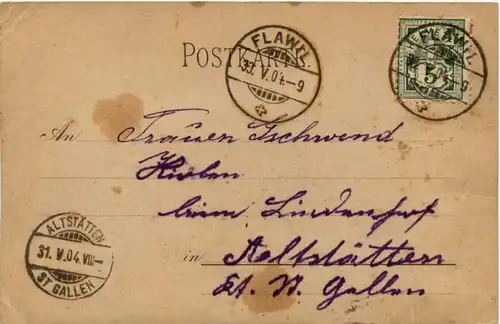 POSTKARTE.
FLAWIL
FLAWIL
5
An Frauen Gschwend
beim Lindenhof
in Aeltstätten
Kt. St. Gallen
ALTSTÄTTEN
31.V.04.VIII–
ST GALLEN